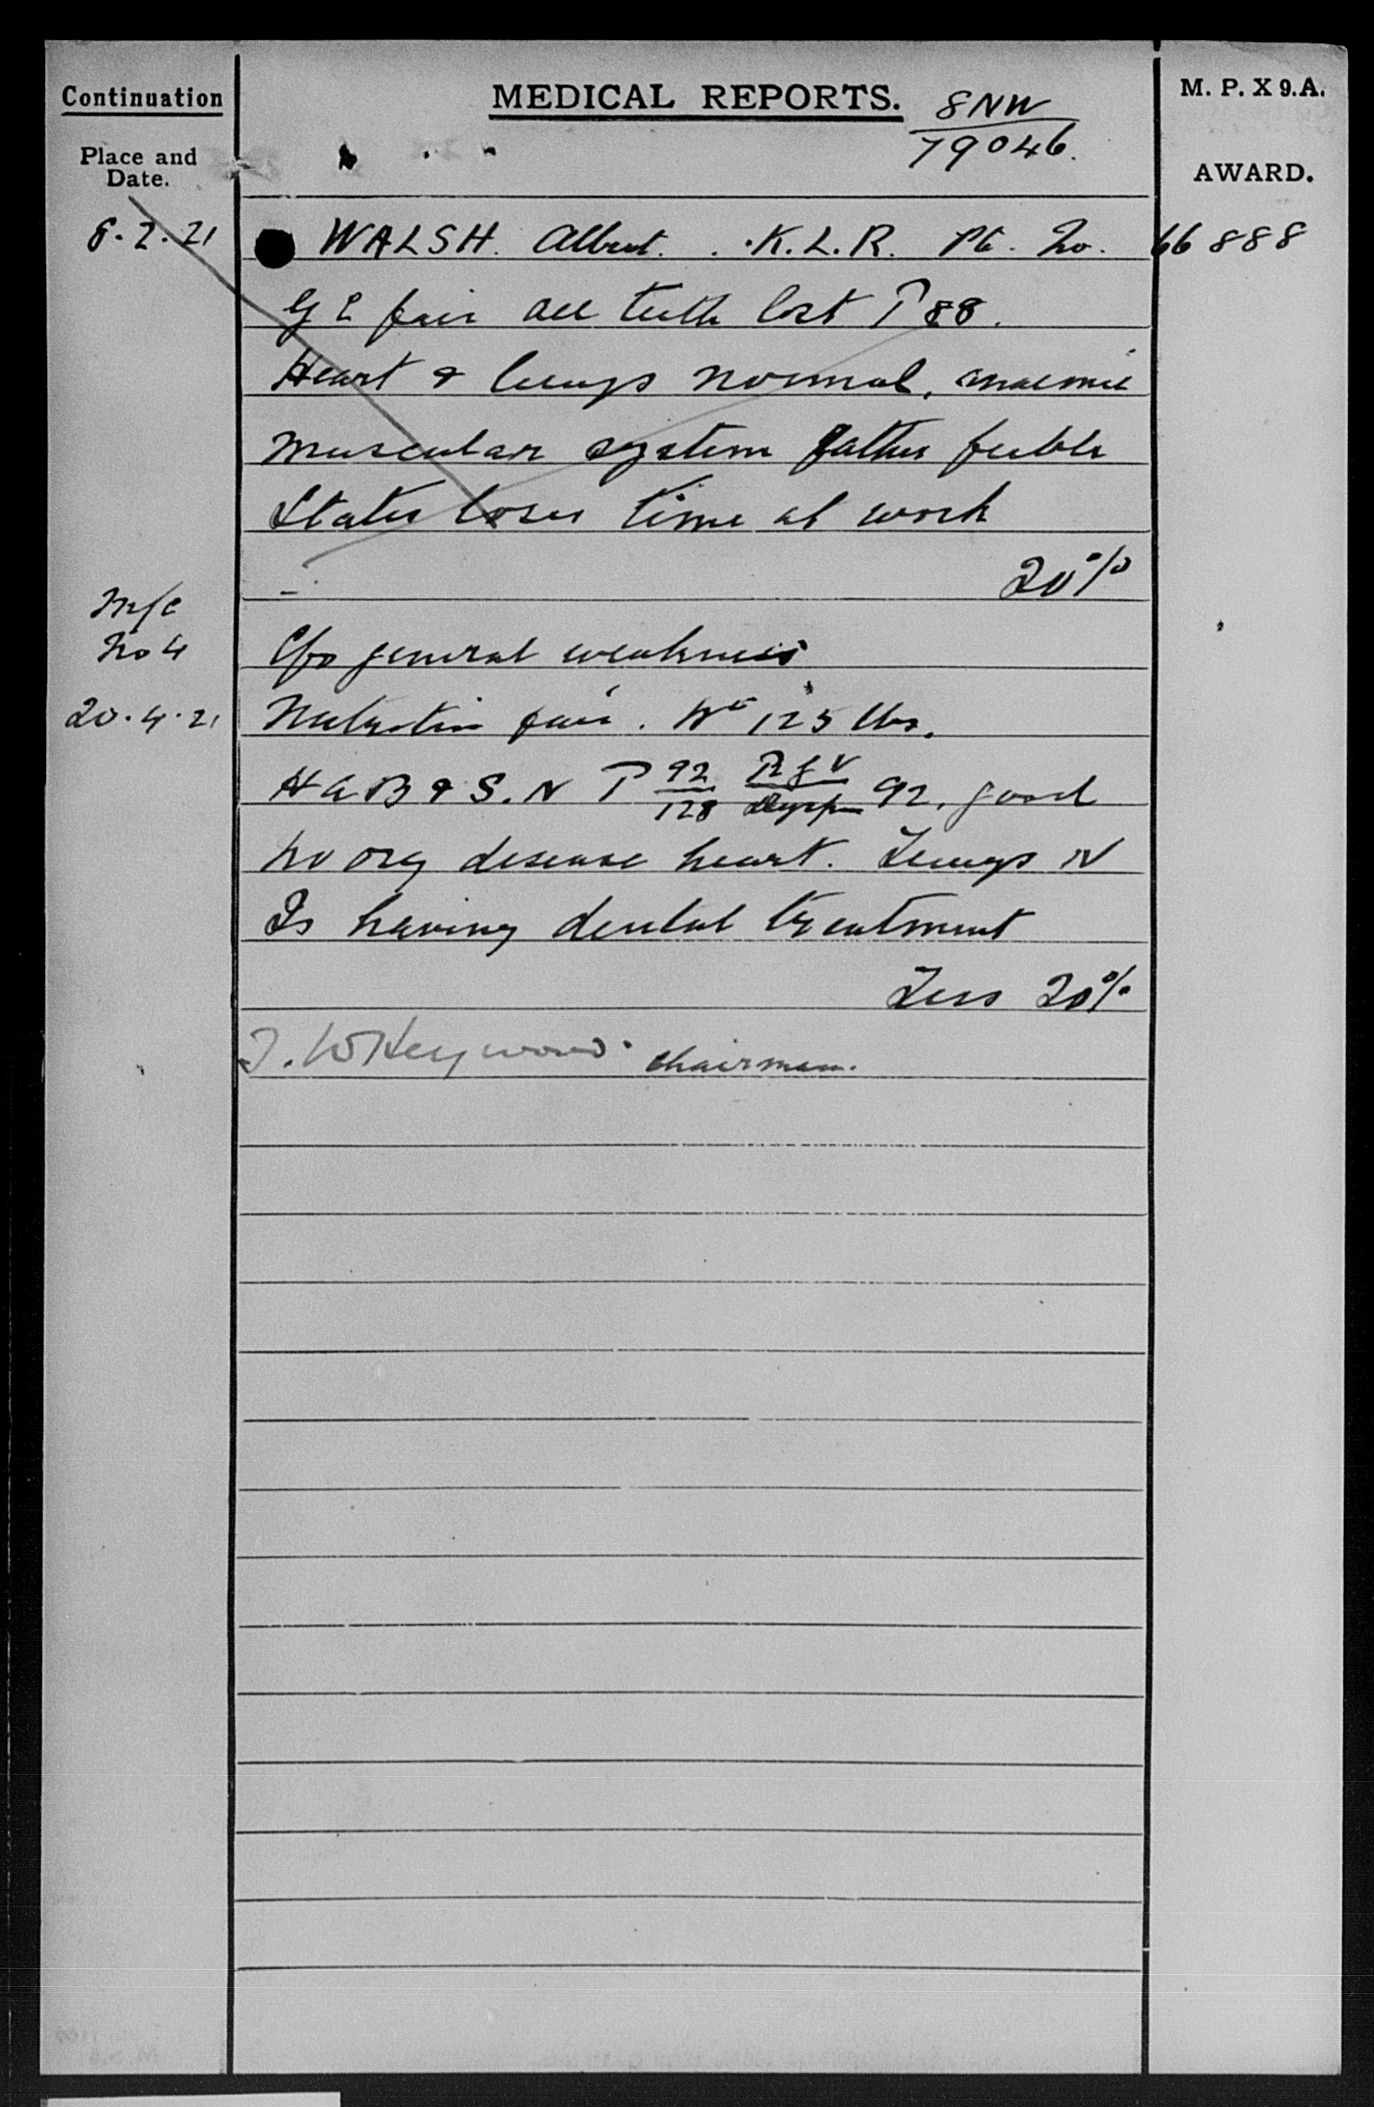 Continuation
MEDICAL REPORTS.
M. P. X 9.A.
8NW
79046.
Place and
Date.
AWARD.
8.2.21
WALSH. Albert. . K.L.R. Pte. No. 66888
G C fair all teeth lost P 88.
Heart & lungs normal, anaemic
muscular system rather feeble
States loses time at work
20%
M/c
No 4
C/o general weakness
20.4.21
Nutrition fair. Wt 125 lbs.
H A B & S. N P 92/128 92. good
no org disease heart. Lungs N
Is having dental treatment
Less 20%
J. W Heywood. Chairman.